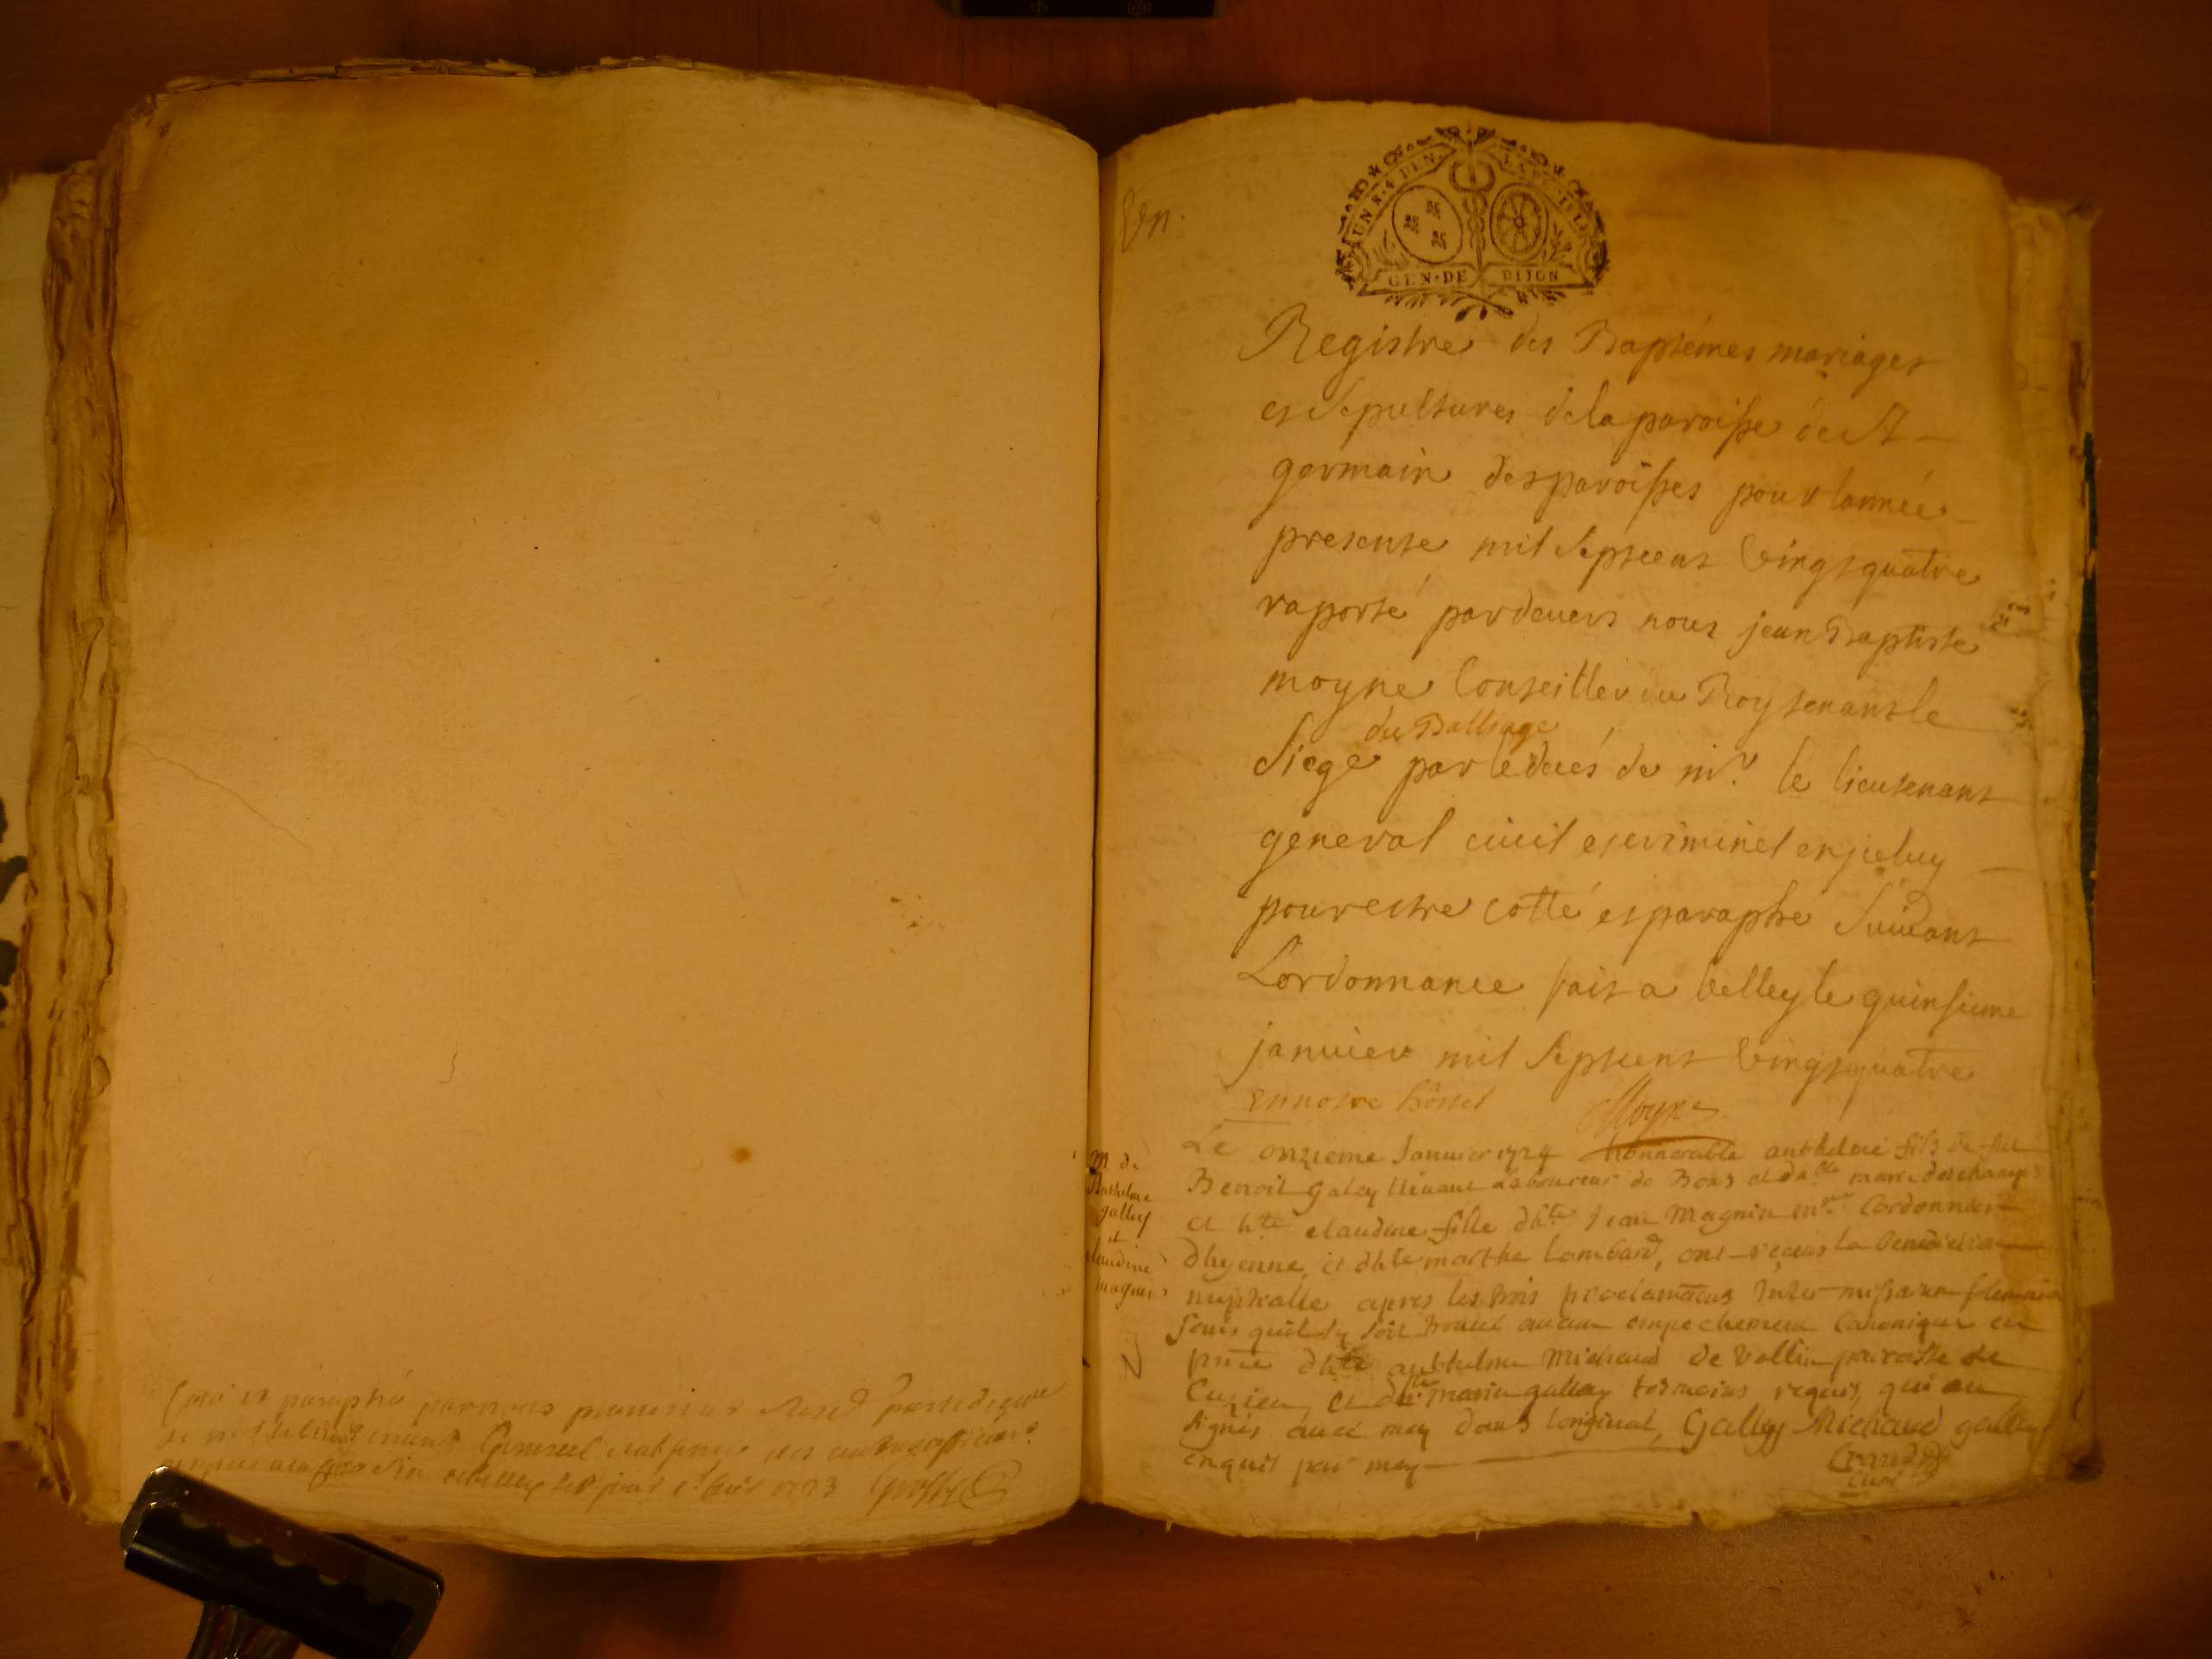 Cotté et paraphé par nous
General
1723
Un.
UN S. 4 DEN.
GEN · DE DIJON
Registre des Baptémes mariages
et Sepultures de la paroisse de St
germain des paroisses pour lannée
presente mil Septcent Vingtquatre
raporté pardevers nous jean Baptiste
moyne Conseiller du Roy tenant le
du Balliage
Siege par le decés de mr. le lieutenant
general civil et criminel en jceluy
pour estre cotté et paraphé Suivant
Lordonnance fait a belley le quinsieme
janvier mil Septcent Vingtquatre
En nostre hôstel Moyne
M de
Anthelme
galley
et
claudine
magnin
Le onzieme Janvier 1724 honnorable anthelme fils de feu
Benoit Galey vivant Laboureur de Bons et de marie deschamps
et hte claudine fille dhble Jean Magnin me Cordonnier
dhyenne, et dhte marthe Lombard, ont reçeus la benediction
nuptialle apres les trois proclamations Inter missarum solemnia
sans quil sy soit trouvé aucun empechement Canonique en
pnce dhble anthelme Michaud de Vollin paroisse de
Cuzieu et marie galley temoins requis, qui on
signés avec moy dans loriginal, Galley Michaud galley
enquis par moy
curé